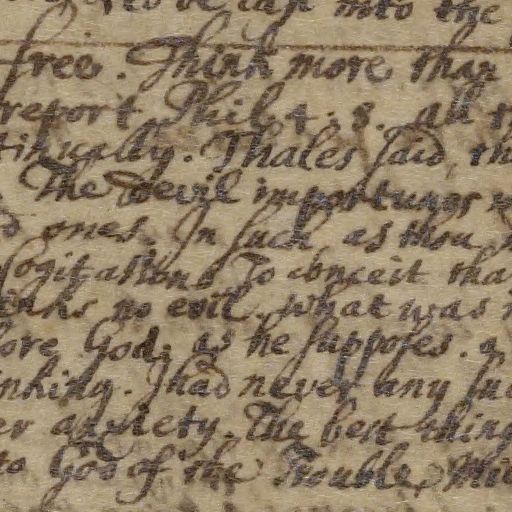 to be cast into the
free. Think more than
report Phil. 4. 8. all
tinually. Thales said, th
The Devil importunes
ones. In such as thou
Cogitations To conceit tha
no evil. what was
fore God, as he supposes. a
inking. I had never any su
er anxiety. The best thing
to God of the Trouble,